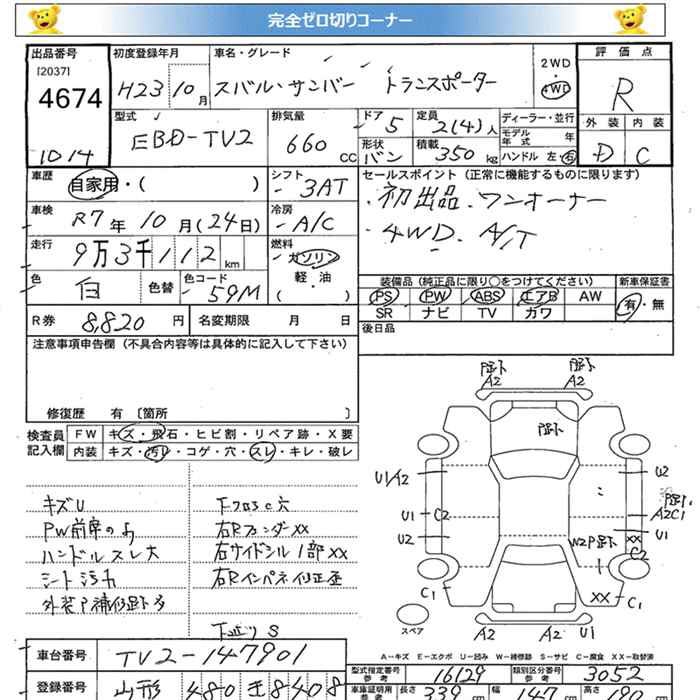 完全ゼロ切りコーナー
出品番号
[2037]
4674
1014
初度登録年月
H23 10月
車名・グレード
スバル・サンバー トランスポーター
2WD
4WD
評価点
R
外装 内装
D C
型式
EBD-TV2
排気量
660 CC
ドア 5
形状 バン
定員 2(4)人
積載 350 kg
ディーラー・並行
モデル年式 年
ハンドル 左・右
車歴
自家用・( )
シフト
3AT
車検
R7年10月(24日)
冷房
A/C
走行
9万3千112km
燃料
ガソリン
軽・油
( )
色
白
色替
色コード
59M
セールスポイント (正常に機能するものに限ります)
・初出品・ワンオーナー
・4WD. A/T
装備品 (純正品に限り○をつけてください)
新車保証書
PS PW ABS エアB AW
SR ナビ TV カワ
有・無
R券 8,820円
名変期限 月 日
後日品
注意事項申告欄 (不具合内容等は具体的に記入して下さい)
修復歴 有 [箇所 ]
検査員記入欄
FW キズ・飛石・ヒビ割・リペア跡・X要
内装 キズ・汚レ・コゲ・穴・スレ・キレ・破レ
キズU
PW前席のみ
ハンドルスレ大
シート汚れ
外装P補修跡多
下フロSC穴
右RフェンダーXX
右サイドシル1部XX
右Rインパネ修正歪
下廻りS
A2 A2
U1/A2 U2
A2C1
U1 C2 U1
U2 W2P跡 XX
C2
C1 XX C1
スペア
A2 A2 U1
A−キズ E−エクボ U−凹み W−補修跡 S−サビ C−腐食 XX−取替済
車台番号 TV2-147901
登録番号 山形 480 き 8408
型式指定番号 参考 16129
類別区分番号 参考 3052
車庫証明用 参考 長さ 339 幅 147 高さ 190